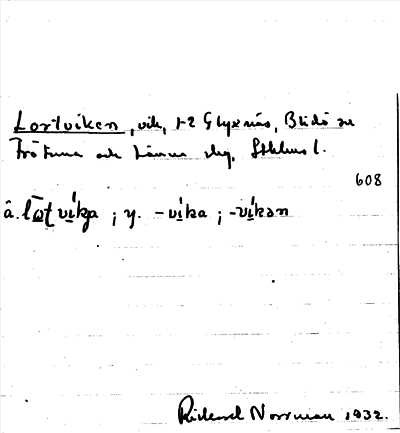 Lortviken, vik, 1-2 Glyxnäs, Blidö sn
Frötuna och Länna skg, Sthlms l.
608
å. lω̄ţ víkja ; y. -víka ; -víkən
Rickard Norrman 1932.